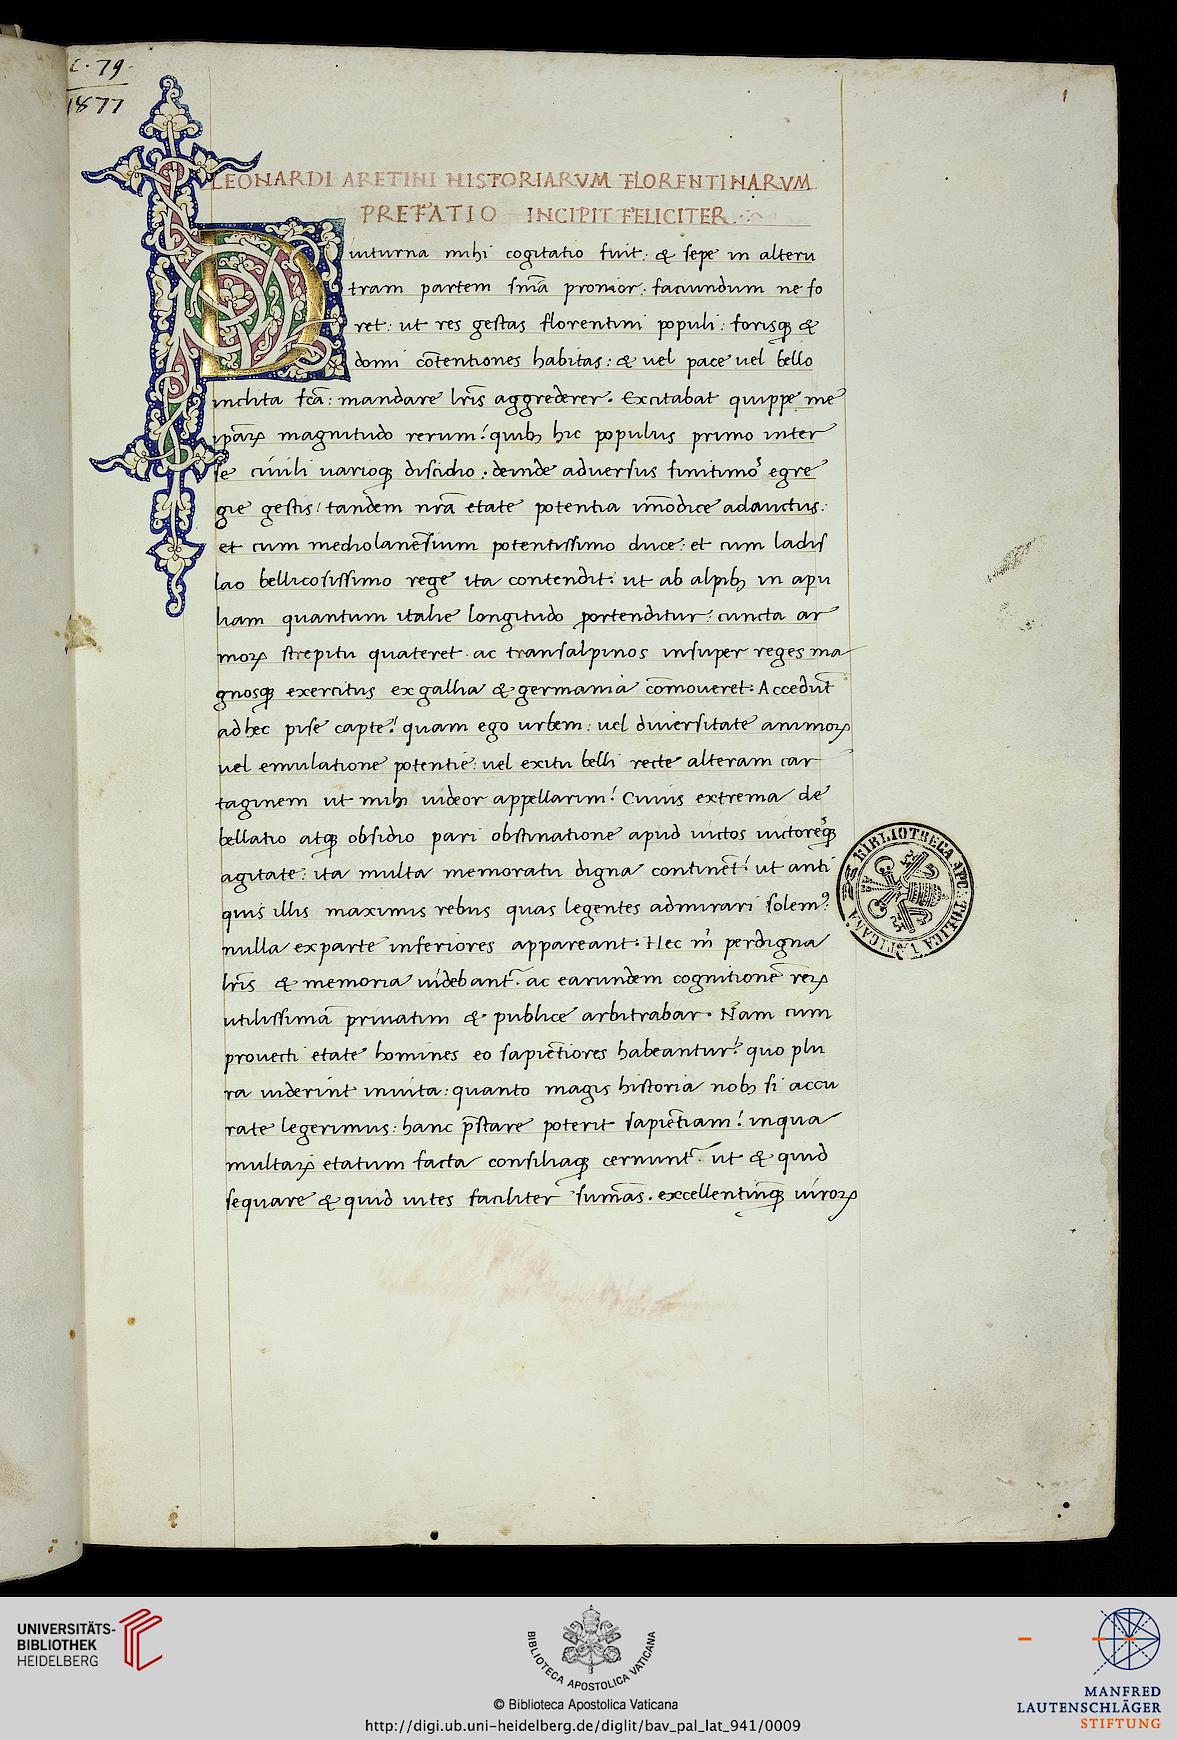 C. 79.
1877
1
LEONARDI ARETINI HISTORIARVM FLORENTINARVM
PREFATIO INCIPIT FELICITER.
Diuturna mihi cogitatio fuit: & sepe in alteru
tram partem snīa pronior: faciundum ne fo
ret: ut res gestas florentini populi: forisq; &
domi cōtentiones habitas: & uel pace uel bello
inclita fcā: mandare lrīs aggrederer. Excitabat quippe me
ipāꝝ magnitudo rerum: quibȝ hic populus primo inter
se ciuili uarioq; discidio: deinde aduersus finitimoˀ egre
gie gestis: tandem nrā etate potentia īmodice adauctus:
et cum mediolanēsium potentissimo duce: et cum ladis
lao bellicosissimo rege ita contendit: ut ab alpibȝ in apu
liam quantum italie longitudo portenditur: cuncta ar
moꝝ strepitu quateret. ac transalpinos insuper reges ma
gnosq; exercitus ex gallia & germania cōmoueret. Accedūt
ad hec pise capte: quam ego urbem: uel diuersitate animoꝝ
uel emulatione potentie: uel exitu belli recte alteram car
taginem ut mihi uideor appellarim: Cuius extrema de
bellatio atq; obsidio pari obstinatione apud uictos uictoresq;
agitate: ita multa memoratu digna continēt: ut anti
quis illis maximis rebus quas legentes admirari solemˀ
nulla ex parte inferiores appeareant. Hec m̄ perdigna
lrīs & memoria uidebant̄. ac earundem cognitionē reꝝ
utilissimā priuatim & publice arbitrabar. Nam cum
prouecti etate homines eo sapiētiores habeantur: quo plu
ra uiderint in uita: quanto magis historia nobȝ si accu
rate legerimus: hanc p̄stare poterit sapiētiam: in qua
multaꝝ etatum facta consiliaq; cernunt̄. ut & quid
sequare & quid uites faciliter sumās. excellentiūq; uiroꝝ
BIBLIOTHECA APOSTOLICA VATICANA
UNIVERSITÄTS-
BIBLIOTHEK
HEIDELBERG
BIBLIOTECA APOSTOLICA VATICANA
© Biblioteca Apostolica Vaticana
http://digi.ub.uni-heidelberg.de/diglit/bav_pal_lat_941/0009
MANFRED
LAUTENSCHLÄGER
STIFTUNG